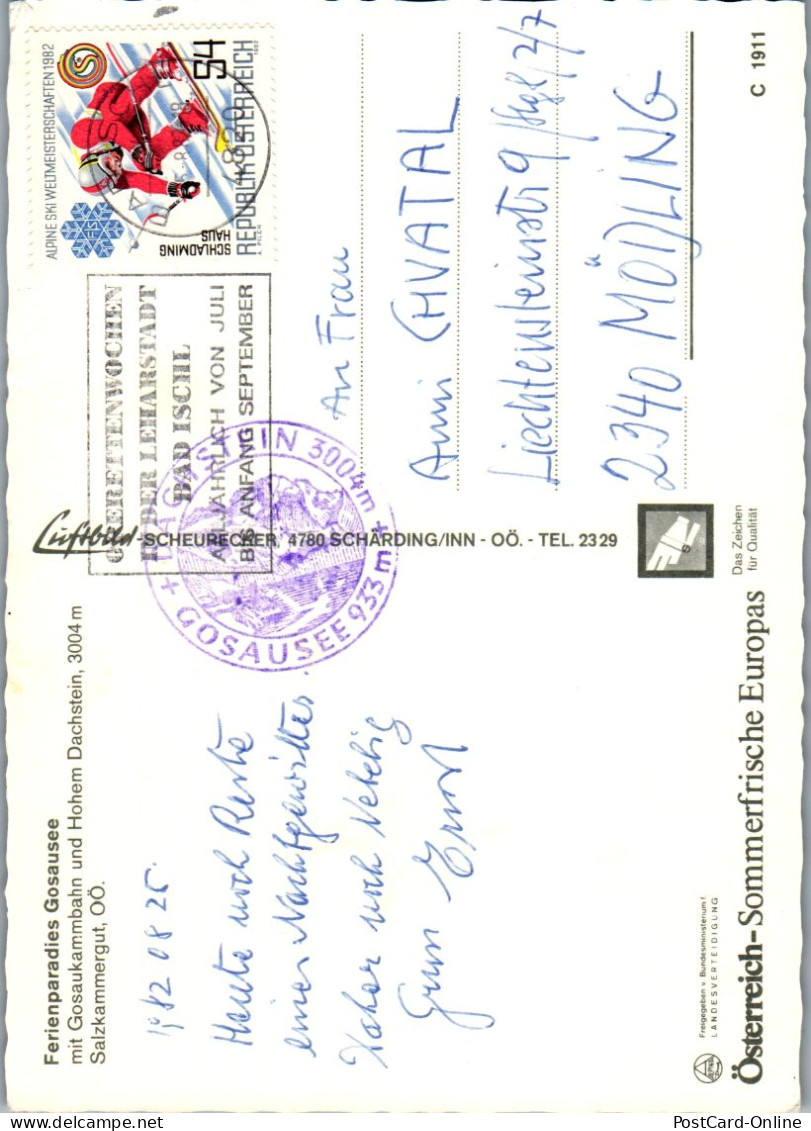 Ferienparadies Gosausee
mit Gosaukammbahn und Hohem Dachstein, 3004 m
Salzkammergut, OÖ.
1982 08 25
Heute noch Reste
eines Nachtgewitters.
Daher noch Neblig
Gruss Ernst
Freigegeben v. Bundesministerium f.
LANDESVERTEIDIGUNG
Österreich-Sommerfrische Europas
Luftbild-SCHEURECKER, 4780 SCHÄRDING/INN - OÖ. - TEL. 2329
Das Zeichen
für Qualität
DACHSTEIN 3004 m +
+ GOSAUSEE 933 m
OPERETTENWOCHEN
IN DER LEHARSTADT
BAD ISCHL
ALLJÄHRLICH VON JULI
BIS ANFANG SEPTEMBER
4820
ALPINE SKI WELTMEISTERSCHAFTEN 1982
FIS
S4
SCHLADMING
HAUS
REPUBLIK ÖSTERREICH
1982
An Frau
Anni CHVATAL
Liechtensteinstr 9/Stg 2/7
2340 MÖDLING
C 1911
PostCard-Online